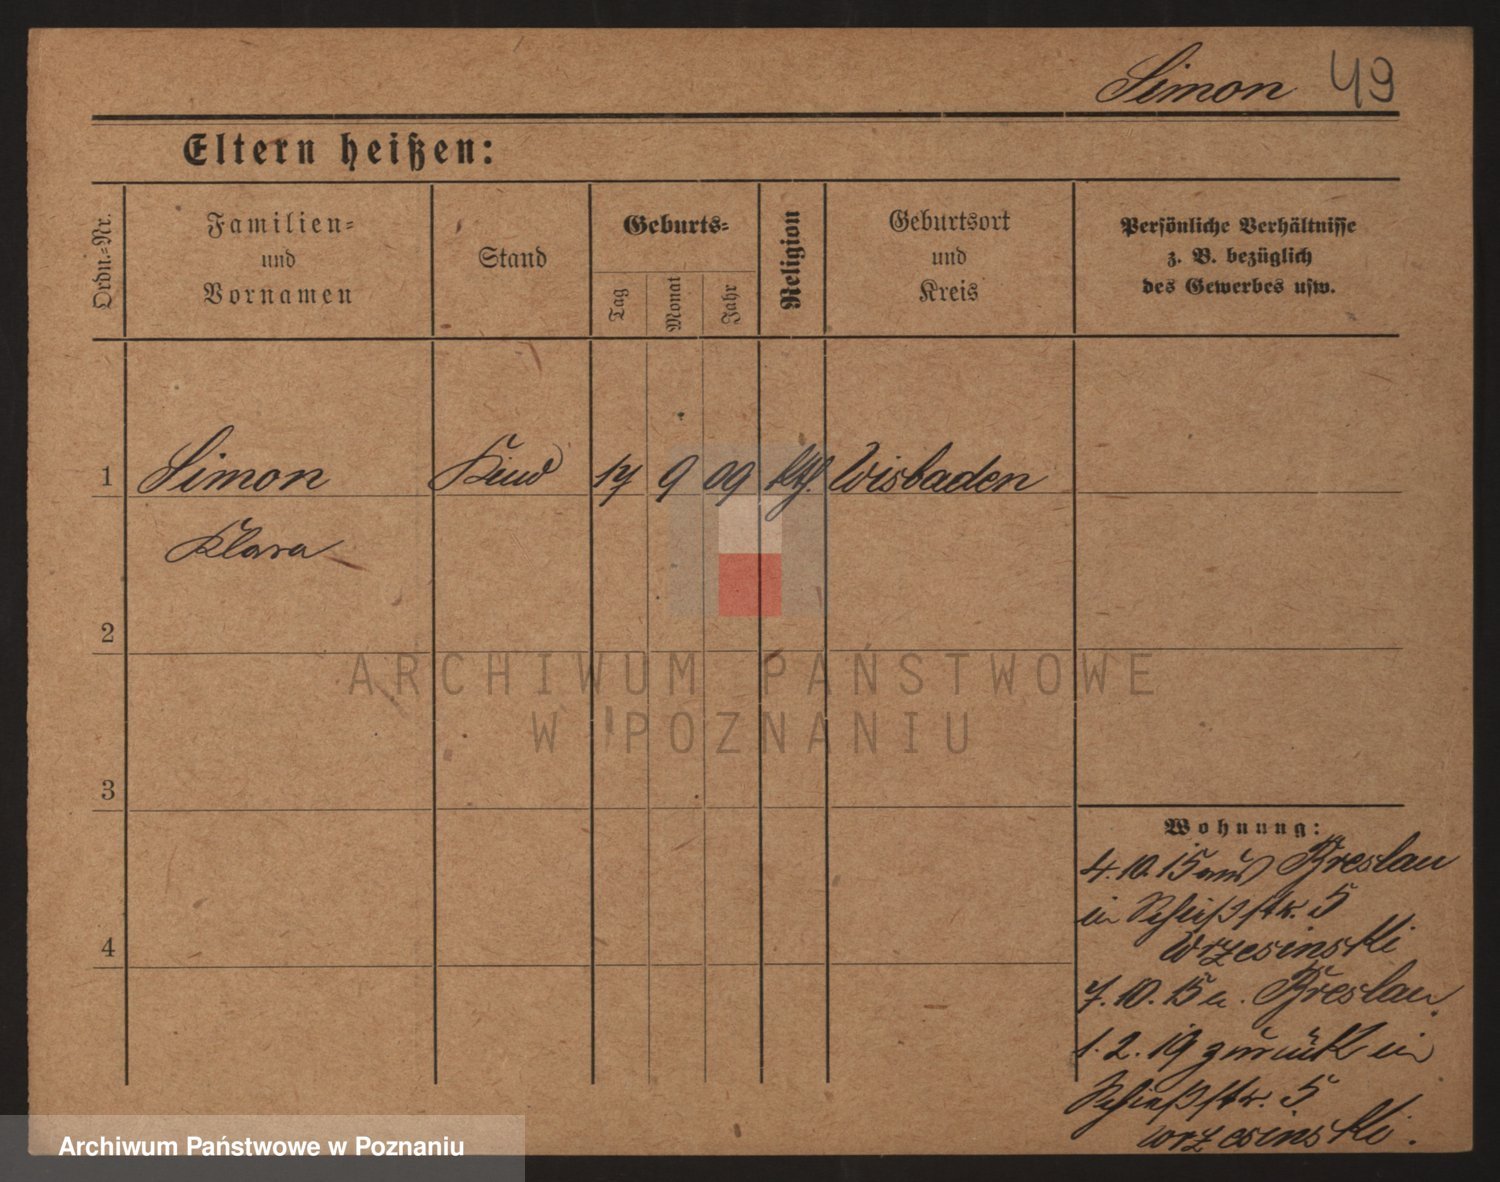 Simon 49
Eltern heißen:
Ordn.-Nr.
Familien-
und
Vornamen
Stand
Geburts-
Tag
Monat
Jahr
Religion
Geburtsort
und
Kreis
Persönliche Verhältnisse
z. B. bezüglich
des Gewerbes usw.
1 Simon Kind 17 9 09 kth. Wisbaden
Klara
2
3
4
Wohnung:
4. 10. 15 aus Breslau
in Schießstr. 5
Wrzesinski
7. 10. 15 n. Breslau
1. 2. 19 zurück in
Schießstr. 5
Wrzesinski.
ARCHIWUM PAŃSTWOWE
W POZNANIU
Archiwum Państwowe w Poznaniu